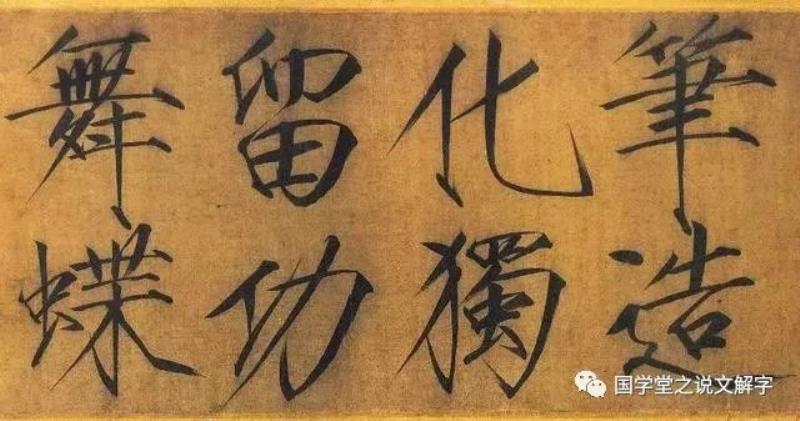 筆造
化獨
留功
舞蝶
国学堂之说文解字